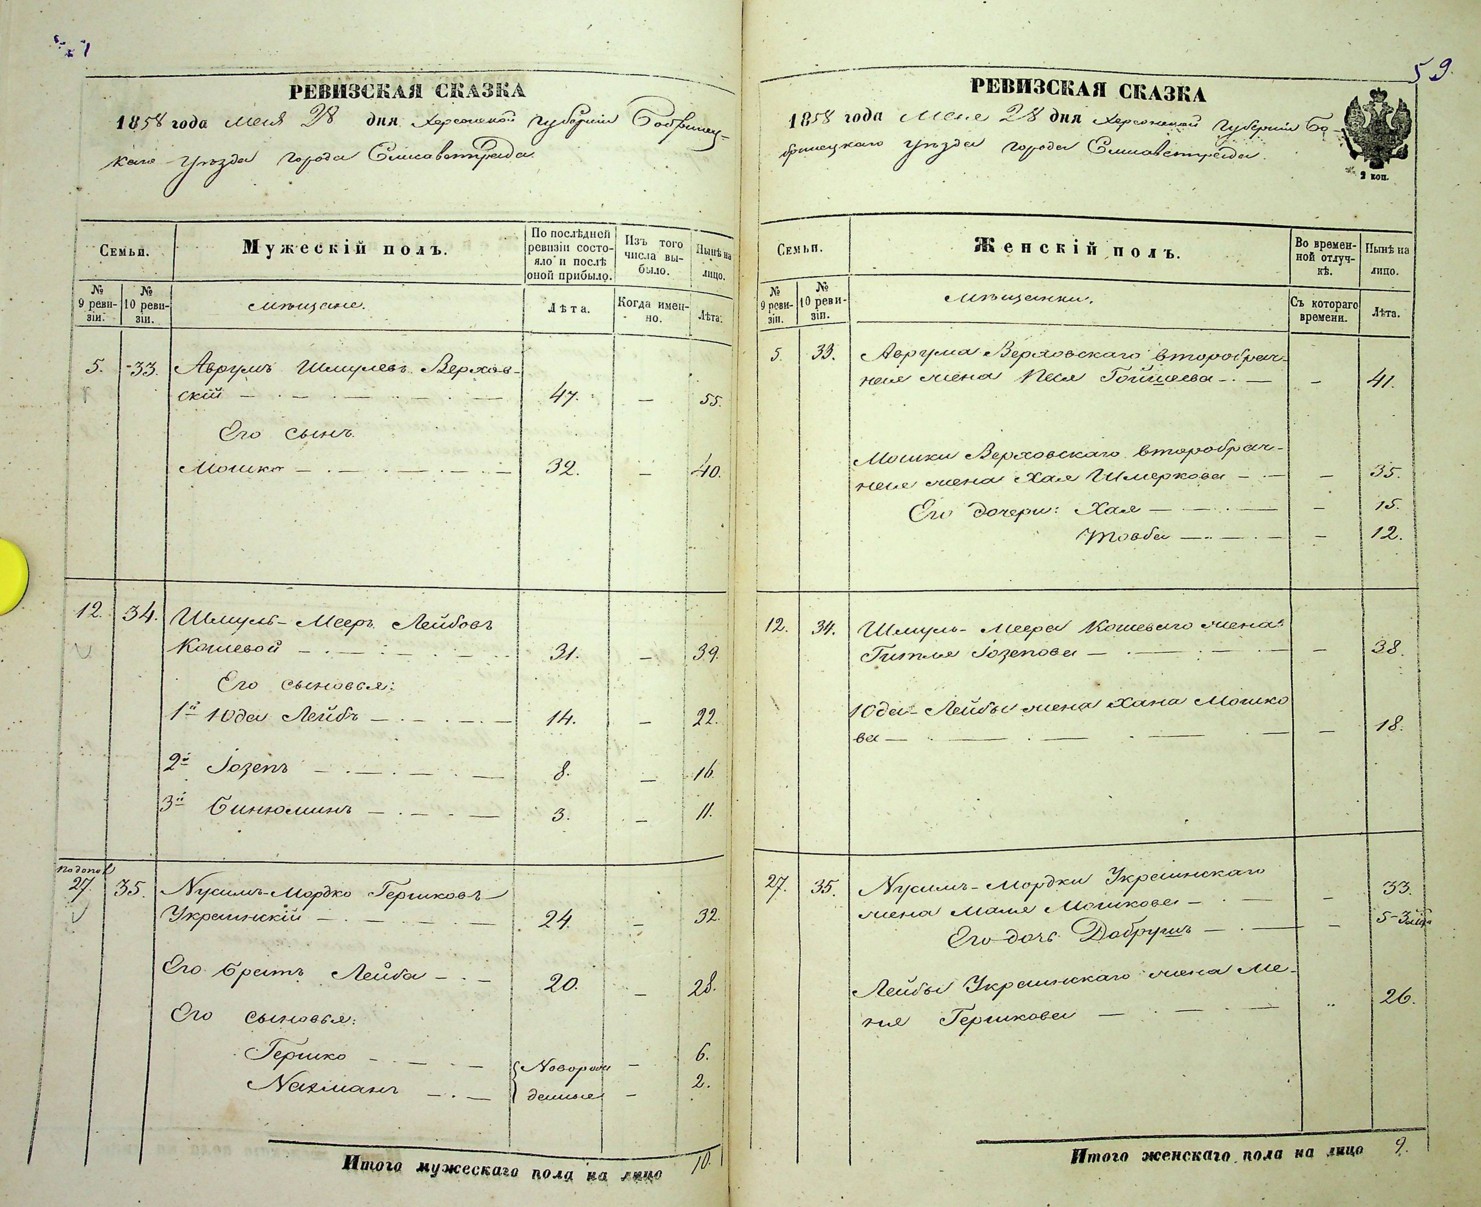 59.
РЕВИЗСКАЯ СКАЗКА
1858 года Мая 28 дня Херсонской Губерніи Бобринец-
каго уѣзда города Елисаветграда
Семьи.
Мужескій полъ.
По послѣдней ревизіи состояло и послѣ оной прибыло.
Изъ того числа выбыло.
Нынѣ на лицо.
№ 9 ревизіи.
№ 10 ревизіи.
мѣщане.
Лѣта.
Когда именно.
Лѣта.
5. 33. Аврумъ Шмулевъ Верхов-
скій 47. 55.
Его сынъ
Мошко 32. 40.
12. 34. Шмуль-Мееръ Лейбовъ
Кошевой 31. 39.
Его сыновья:
1й Юда Лейбъ 14. 22.
2й Іозепъ 8. 16.
3й Бинюминъ 3. 11.
27. 35. Нухимъ-Мордко Гершковъ
Украинскій 24. 32.
Его братъ Лейба 20. 28.
Его сыновья:
Гершко Новорож 6.
Нахманъ денные 2.
Итого мужескаго пола на лицо 10.
РЕВИЗСКАЯ СКАЗКА
1858 года Мая 28 дня Херсонской Губерніи Бо-
бринецкаго уѣзда города Елисаветграда.
2 коп.
Семьи.
Женскій полъ.
Во временной отлучкѣ.
Нынѣ на лицо.
№ 9 ревизіи.
№ 10 ревизіи.
мѣщанки.
Съ котораго времени.
Лѣта.
5. 33. Аврума Верховскаго второбрач-
ная жена Песя 41.
Мошки Верховскаго второбрач-
ная жена Хая Шмеркова 35.
Его дочери: Хая 15.
Товба 12.
12. 34. Шмуль-Меера Кошеваго жена
Гитля Іозепова 38.
Юда-Лейбы жена Хана Мошко
ва 18.
27. 35. Нухимъ-Мордки Украинскаго
жена Маля Мошкова 33.
Его дочь Добрушъ
Лейбы Украинскаго жена Ме-
ня Гершкова 26.
Итого женскаго пола на лицо 9.